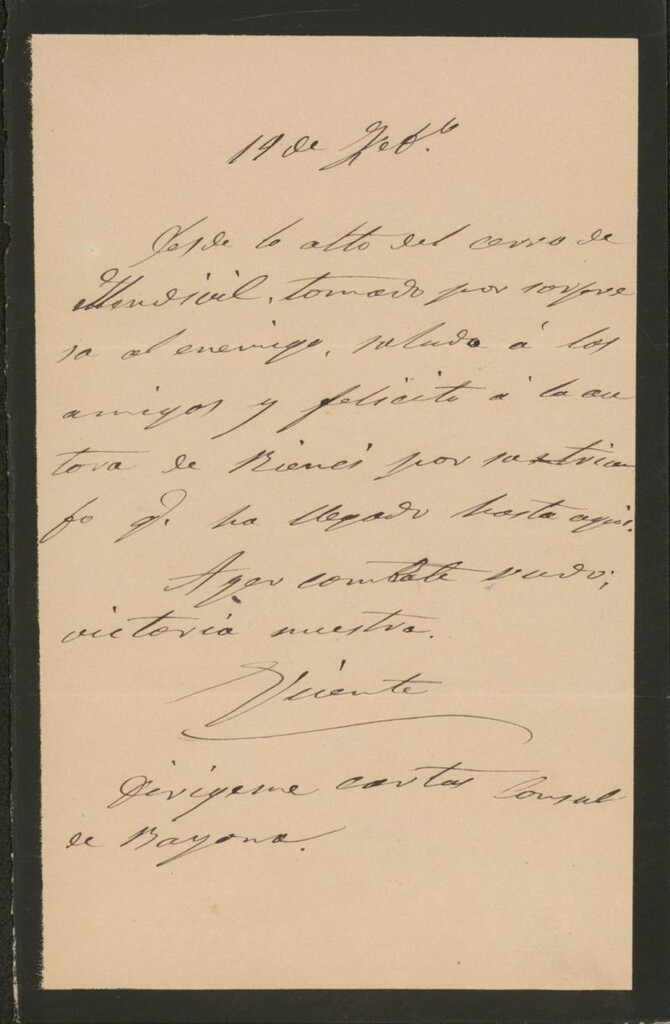 19 de Feb.º
Desde lo alto del cerro de
Mendivil, tomado por sorpre
sa al enemigo, saludo á los
amigos y felicito á la au
tora de Rienzi por su triun
fo q. ha llegado hasta aquí.
Ayer combate rudo;
victoria nuestra.
Vicente
Dirigeme cartas Consul
de Bayona.